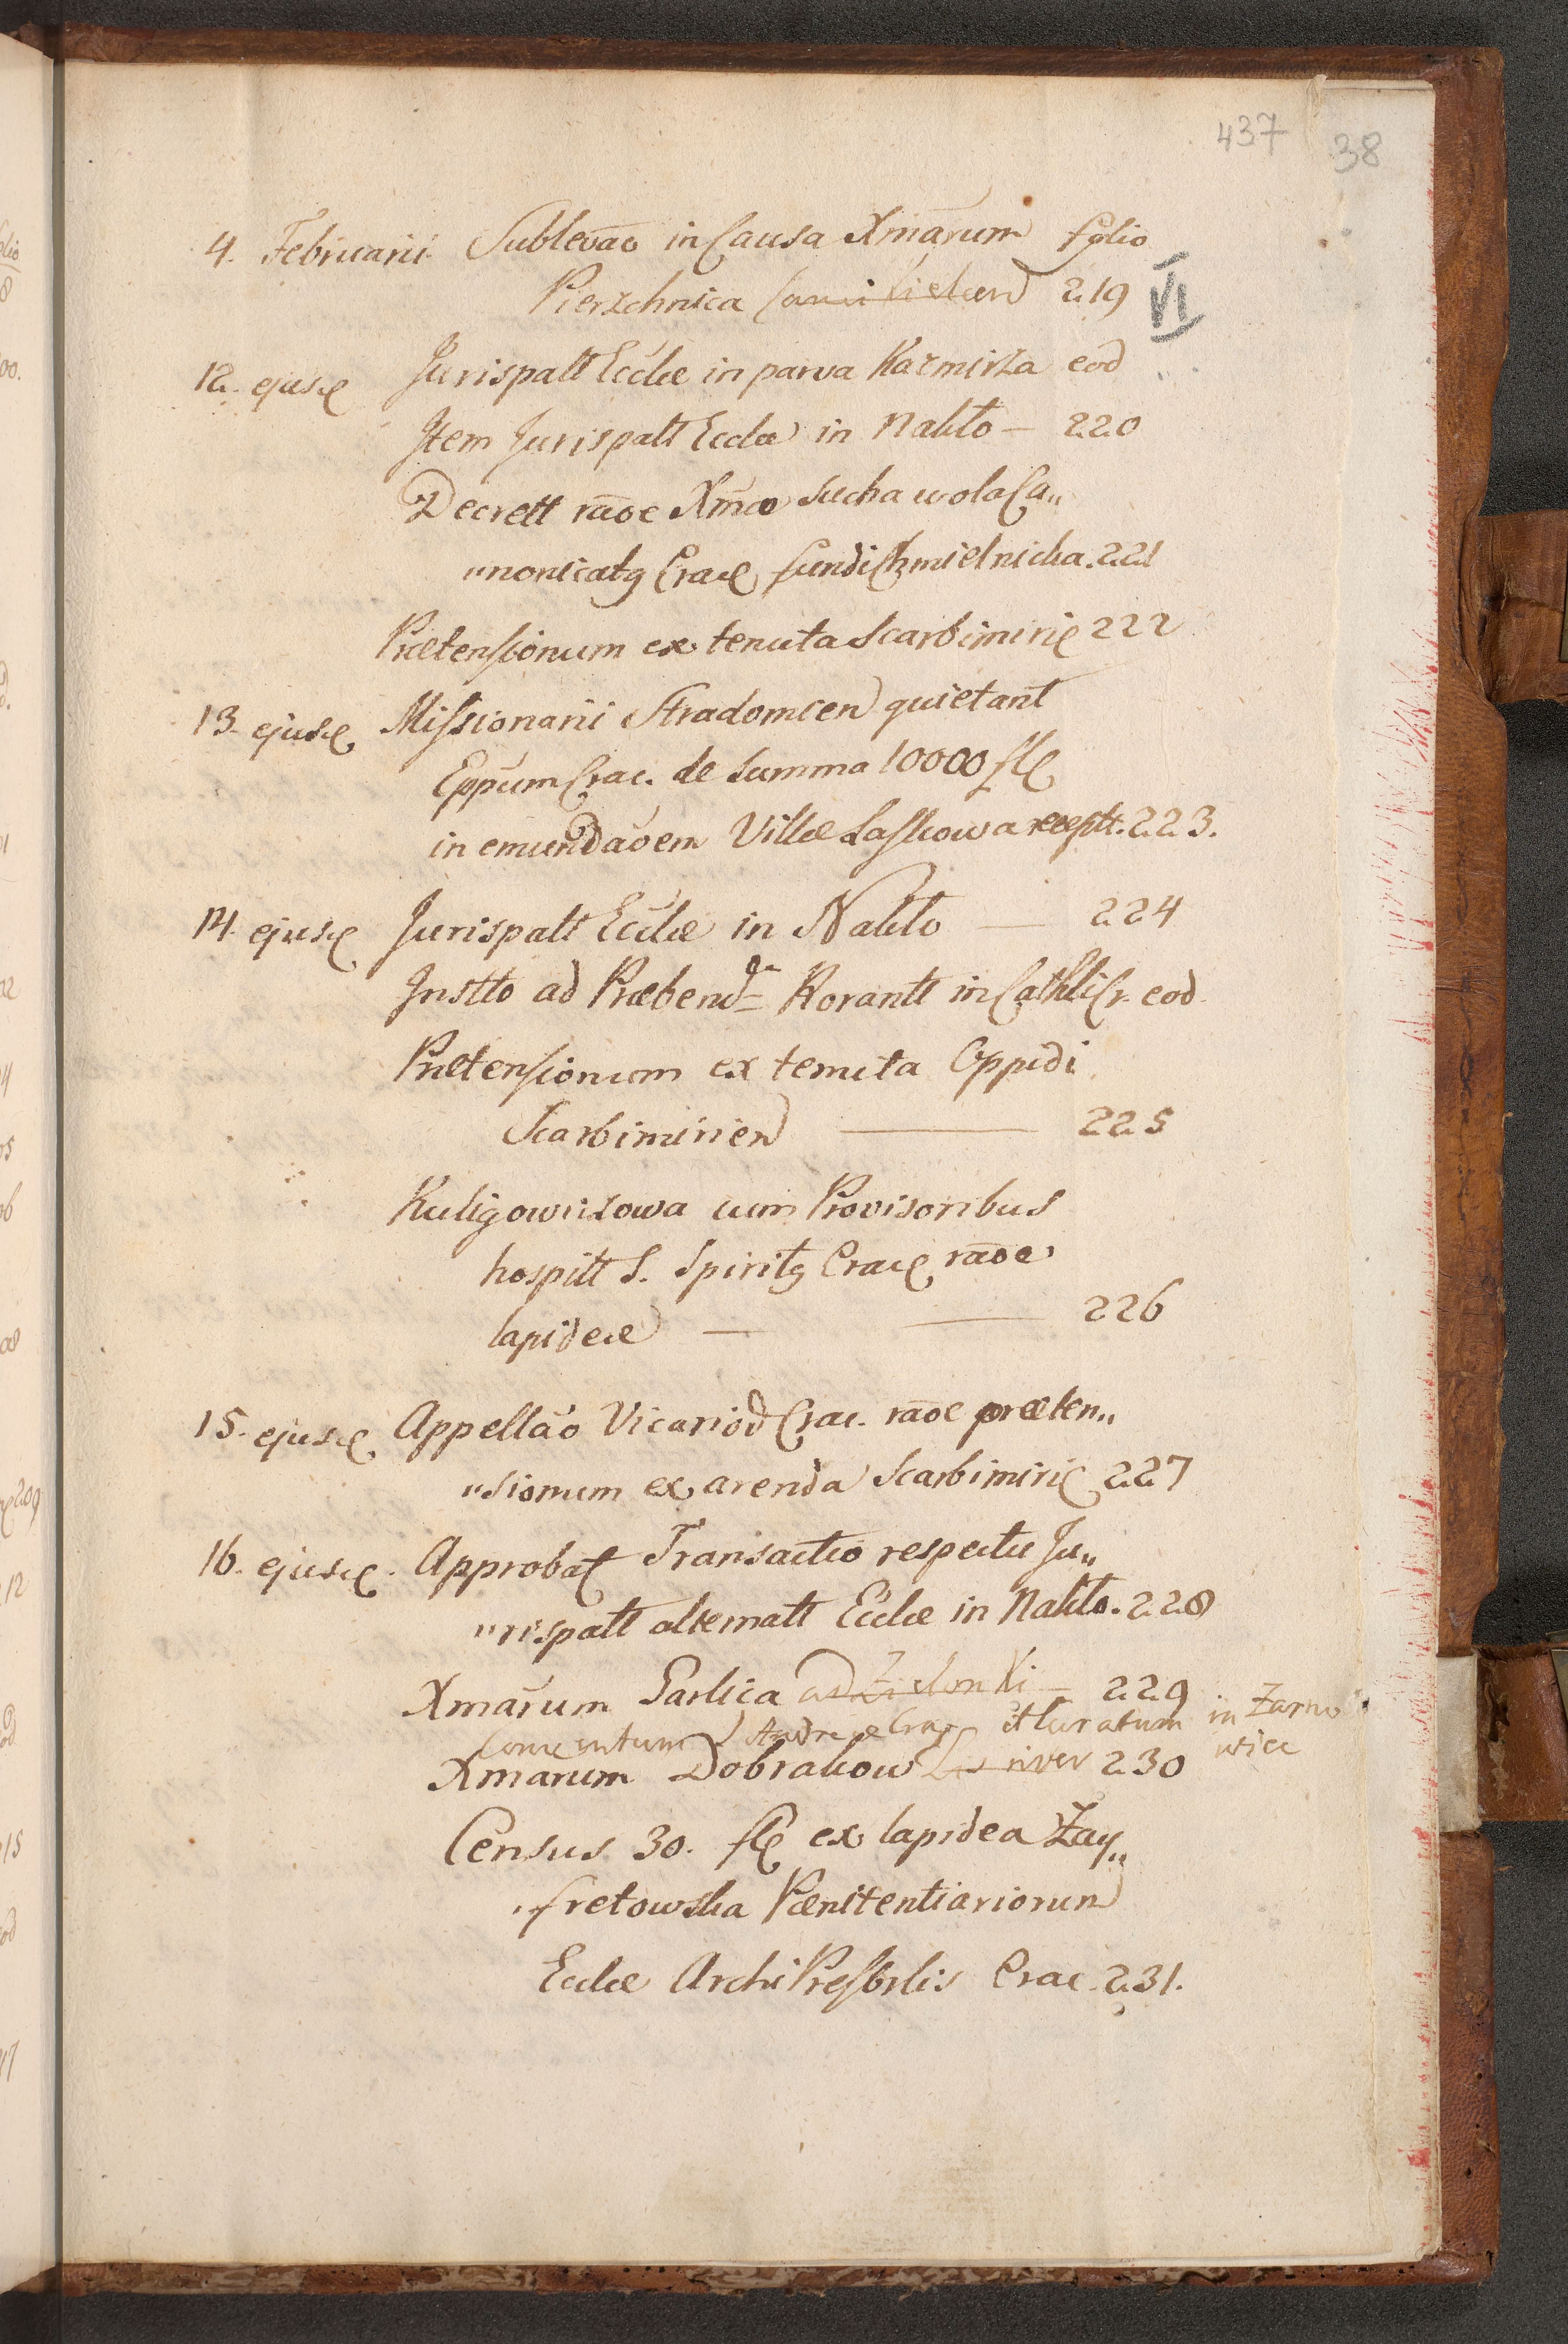 437 38
4. Februarii Sublevāo in Causa Xmārum folio
Pierzchnica 219
VI
12. ejusd Jurispatt Ecclæ in parva Kazmirza eod
Item Jurispatt Ecclæ in Nakło — 220
Decrett rāōe Xmæ sucha wola Ca„
„nonicatg Crac fundi Chmielnicka. 221
Prætensionum ex tenuta Scarbimirie 222
13. ejusd Missionarii Stradomien quietant
Eppum Crac. de Summa 10000 fl
in emundāōem Villæ Laskowa recept. 223.
14. ejusd Jurispatt Ecclæ in Nakło — 224
Instto ad Præbend Rorantt in Cathli Cr. eod
Prætensionum ex tenuta Oppidi
Scarbimirien — 225
Kuligowiczowa cum Provisoribus
hospitt S. Spiritg Crac rāōe
lapideæ — — 226
15. ejusd Appellāo Vicariod Crac. rāōe præten„
„sionum ex arenda Scarbimirie 227
16. ejusd. Approbat Transactio respectu Ju„
„rispatt alternatt Ecclæ in Nakło. 228
Xmārum Garlica ad Zielonki — 229
Conventum S Andreæ Crac et Curatum in Zarno
wiec
Xmarum Dobrakow 230
Census 30. fl ex lapidea Zay„
„fretowska Pænitentiariorum
Ecclæ ArchiPresbrlis Crac. 231.